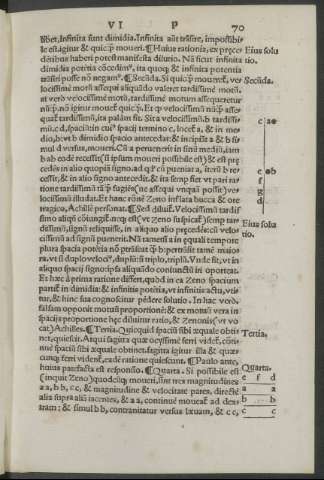 VI P 70
libet. Infinita sunt dimidia. Infinita aūt trāsire, impossibi-
le est. igitur & quicq̄ moueri. ¶ Huius rationis, ex prece
dētibus haberi potest manifesta dilutio. Nā sicut infinita
dimidia potētia cōcedimꝰ, ita quoq; & infinita potentia
trāsiri posse nō negamꝰ. ¶ Secūda. Si quicq̄ mouereť, ve
locissimē motū assequi aliquādo valeret tardissimē motū.
at verò velocissimē motū, tardissimē motum assequeretur
nūq̄. nō igitur moueť quicq̄. Et q̄ velocissimū nūq̄ asse-
quať tardissimū, ita palàm fit. Sit a velocissimū. b tardissi-
mū. c d, spaciū in cuiꝰ
dio, b: vt b dimidio spacio antecedat: & incipiāt a & b si-
mul d versus, moueri. Cū a peruenerit in suū mediū, iam
b ab eodē recessit (si ipsum moueri possibile est) & est præ
cedēs in alio quopiā signo. ad qď cū pueniat a, iterū b re-
cessit, & in alio signo antecedit. & ita semp fiet vt pari ra-
tione tardissimū
locissimū illudat. Et hanc rōnē Zeno inflata bucca & ore
tragico, Achillē personat. ¶ Sed diluiť. Velocissimū tardis
simo aliqň cōiungiť. neq; est (vt Zeno suspicať) semp tar
dissimū, signū reliquisse, in aliquo alio præcedēs: cū velo
cissimū ad signū puenerit. Nā tametsi a in equali tempore
plura spacia potētia nō
ra. vt si duplo velociꝰ, duplū: si triplo, triplū. Vnde fit, vt in
aliquo spacij signo: ipsa aliquādo coniuncta iri oporteat.
Et hæc à prima ratione differt, quòd in ea Zeno spacium
partiť in dimidia: & infinitis potētia, vt infinitis actu, vti-
tur. & hinc sua cognoscitur pēdere solutio. In hac verò,
falsam opponit motus proportionē: & ex motus vera in
spacijs proportione hęc diluitur ratio, & Zenonis (vt vo-
cat) Achilles. ¶ Tertia. Quicquid spaciū sibi æquale obti-
net, quiescit. Atqui sagitta quæ ocyssimē ferri videť, conti-
nuè spacium sibi æquale obtinet. sagitta igitur illa & quæ-
cunq; ferri videnť, eadē ratione quiescunt. ¶ Paulo ante,
huius patefacta est responsio. ¶ Quarta. Si possibile est
(inquit Zeno) quodcūq; moueri, sint tres magnitudines
a a, b b, c c, & magnitudine & velocitate pares. directè
alia supra aliā iacentes, & a a, continuè moueať ad dex-
tram: & simul b b, contranitatur versus lævam, & c c,
Eius solu
tio.
Secūda.
c a e
e b
f
g
d
Eius solu
tio.
Tertia.
Quarta.
e f d
a a
b b
c c